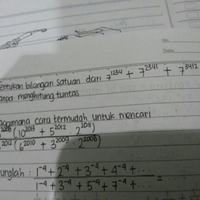 No.
Date
entukan bilangan satuan dari 7^1234 + 7^2341 + 7^3412
anpa menghitung tuntas
agaimana cara termudah untuk mencari
(10^2013 + 5^2012 2^2011)
2012 (6^2010 + 3^2009 2^2008)
unglah : 1^-4 + 2^-4 + 3^-4 + 4^-4 + ... =
1^-4 + 3^-4 + 5^-4 + 7^-4 + ...